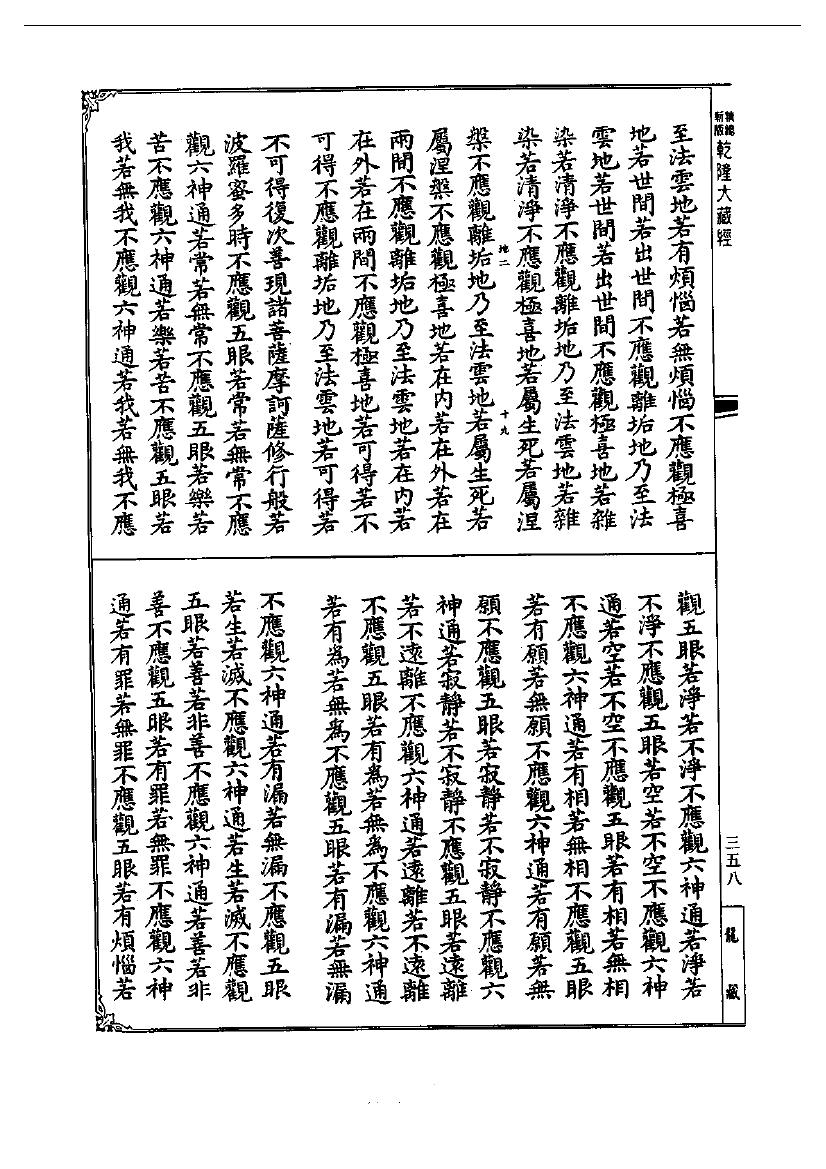 新編
縮版
乾隆大藏經
至法雲地若有煩惱若無煩惱不應觀極喜
地若世間若出世間不應觀離垢地乃至法
雲地若世間若出世間不應觀極喜地若雜
染若清淨不應觀離垢地乃至法雲地若雜
染若清淨不應觀極喜地若屬生死若屬涅
槃不應觀離垢地乃至法雲地若屬生死若
地二
十九
屬涅槃不應觀極喜地若在內若在外若在
兩間不應觀離垢地乃至法雲地若在內若
在外若在兩間不應觀極喜地若可得若不
可得不應觀離垢地乃至法雲地若可得若
不可得復次善現諸菩薩摩訶薩修行般若
波羅蜜多時不應觀五眼若常若無常不應
觀六神通若常若無常不應觀五眼若樂若
苦不應觀六神通若樂若苦不應觀五眼若
我若無我不應觀六神通若我若無我不應
觀五眼若淨若不淨不應觀六神通若淨若
不淨不應觀五眼若空若不空不應觀六神
通若空若不空不應觀五眼若有相若無相
不應觀六神通若有相若無相不應觀五眼
若有願若無願不應觀六神通若有願若無
願不應觀五眼若寂靜若不寂靜不應觀六
神通若寂靜若不寂靜不應觀五眼若遠離
若不遠離不應觀六神通若遠離若不遠離
不應觀五眼若有為若無為不應觀六神通
若有為若無為不應觀五眼若有漏若無漏
不應觀六神通若有漏若無漏不應觀五眼
若生若滅不應觀六神通若生若滅不應觀
五眼若善若非善不應觀六神通若善若非
善不應觀五眼若有罪若無罪不應觀六神
通若有罪若無罪不應觀五眼若有煩惱若
三五八
龍藏